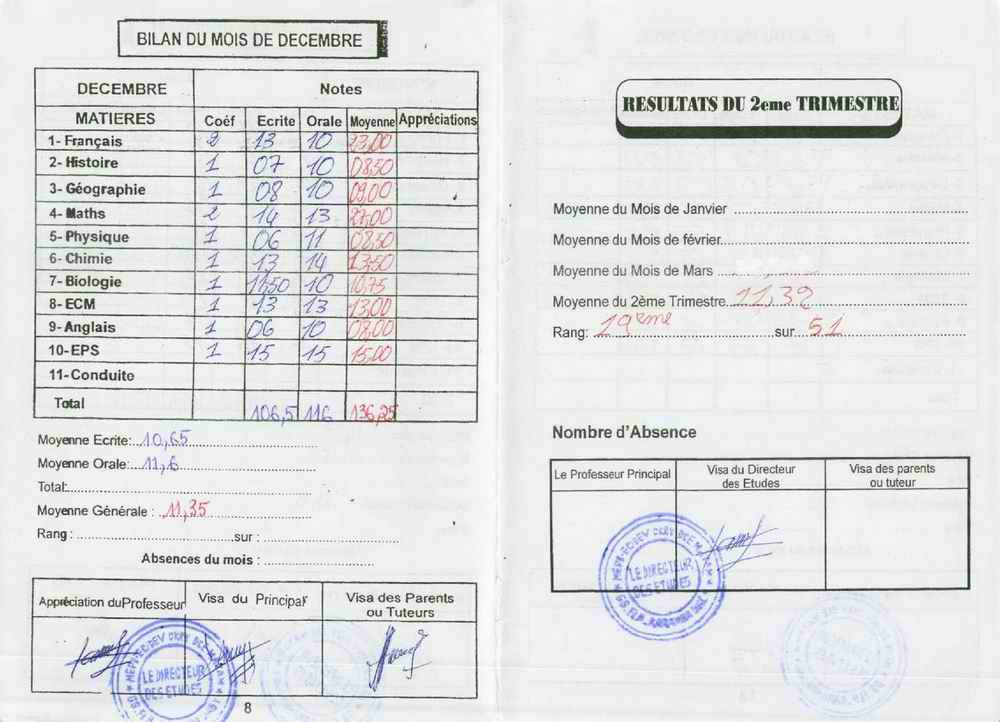 BILAN DU MOIS DE DECEMBRE
DECEMBRE Notes
MATIERES Coéf Ecrite Orale Moyenne Appréciations
1- Français 2 13 10 23,00
2- Histoire 1 07 10 08,50
3- Géographie 1 08 10 09,00
4- Maths 2 14 13 27,00
5- Physique 1 06 11 08,50
6- Chimie 1 13 14 13,50
7- Biologie 1 11,50 10 10,75
8- ECM 1 13 13 13,00
9- Anglais 1 06 10 08,00
10- EPS 1 15 15 15,00
11- Conduite
Total 106,5 116 136,25
Moyenne Ecrite: 10,65
Moyenne Orale: 11,6
Total:
Moyenne Générale : 11,35
Rang : sur :
Absences du mois :
Appréciation du Professeur Visa du Principal Visa des Parents ou Tuteurs
LE DIRECTEUR
DES ETUDES
8
RESULTATS DU 2eme TRIMESTRE
Moyenne du Mois de Janvier
Moyenne du Mois de février
Moyenne du Mois de Mars
Moyenne du 2ème Trimestre. 11,32
Rang: 19ème sur 51
Nombre d'Absence
Le Professeur Principal Visa du Directeur des Etudes Visa des parents ou tuteur
LE DIRECTEUR
DES ETUDES